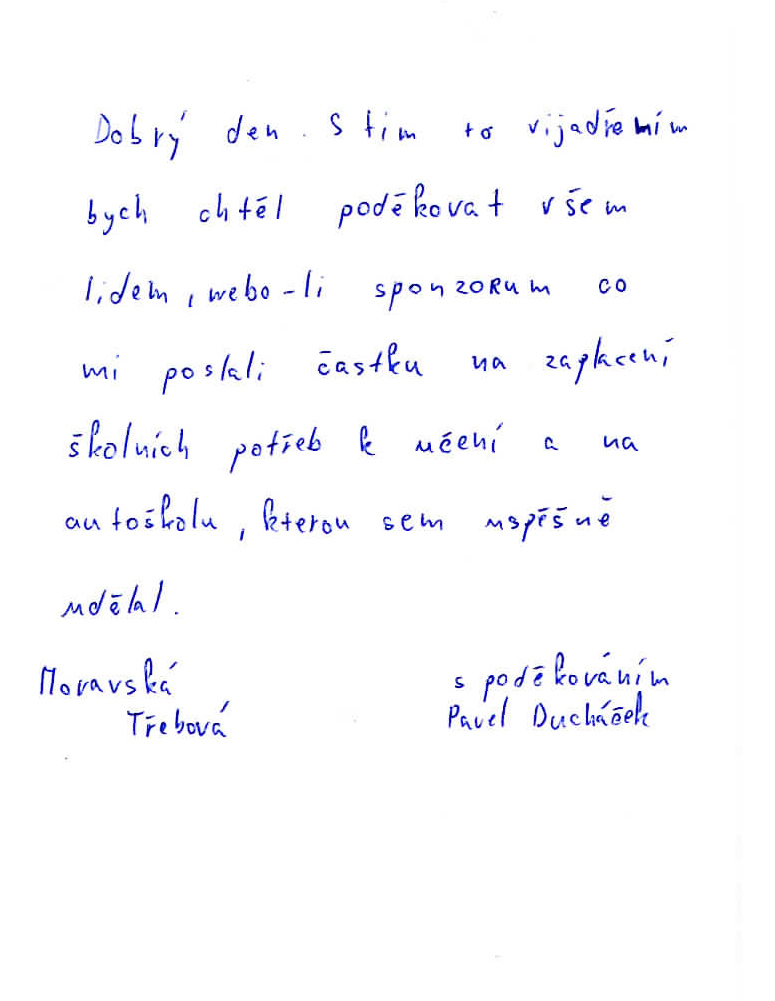 Dobrý den. S tim to vijadřením
bych chtěl poděkovat všem
lidem, nebo-li sponzorum co
mi poslali častku na zaplacení
školních potřeb k učení a na
autoškolu, kterou sem uspěšně
udělal.
Moravská s poděkováním
Třebová Pavel Ducháček